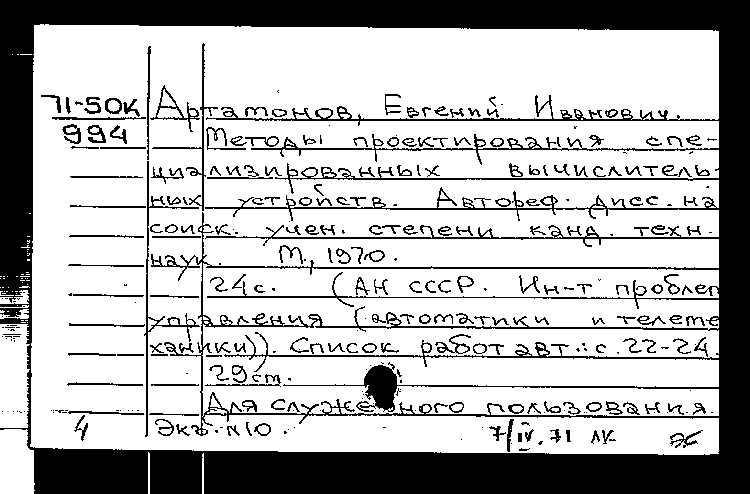 71-50к Артамонов, Евгений Иванович.
994 Методы проектирования спе-
циализированных вычислитель-
ных устройств. Автореф. дисс. на
соиск. учен. степени канд. техн.
наук. М., 1970.
24с. (АН СССР. Ин-т проблем
управления (автоматики и телеме
ханики)). Список работ авт.: с. 22-24.
29см.
Для служебного пользования.
4 Экз. №10. 7/IV.71 ЛК